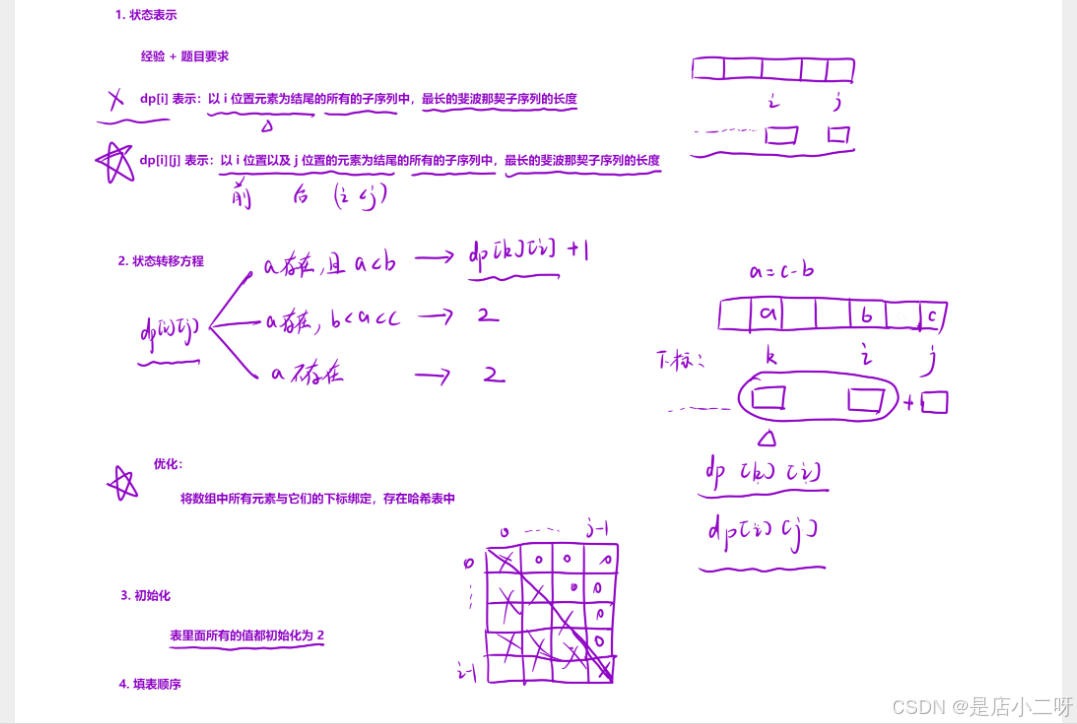 1. 状态表示
经验 + 题目要求
dp[i] 表示：以 i 位置元素为结尾的所有的子序列中，最长的斐波那契子序列的长度
i j
dp[i][j] 表示：以 i 位置以及 j 位置的元素为结尾的所有的子序列中，最长的斐波那契子序列的长度
前 后 (i<j)
2. 状态转移方程
dp[i][j]
a存在,且 a<b → dp[k][i] +1
a存在, b<a<c → 2
a不存在 → 2
a=c-b
a b c
下标: k i j
+
dp[k][i]
dp[i][j]
优化：
将数组中所有元素与它们的下标绑定，存在哈希表中
0 j-1
0
i-1
3. 初始化
表里面所有的值都初始化为 2
4. 填表顺序
CSDN @是店小二呀